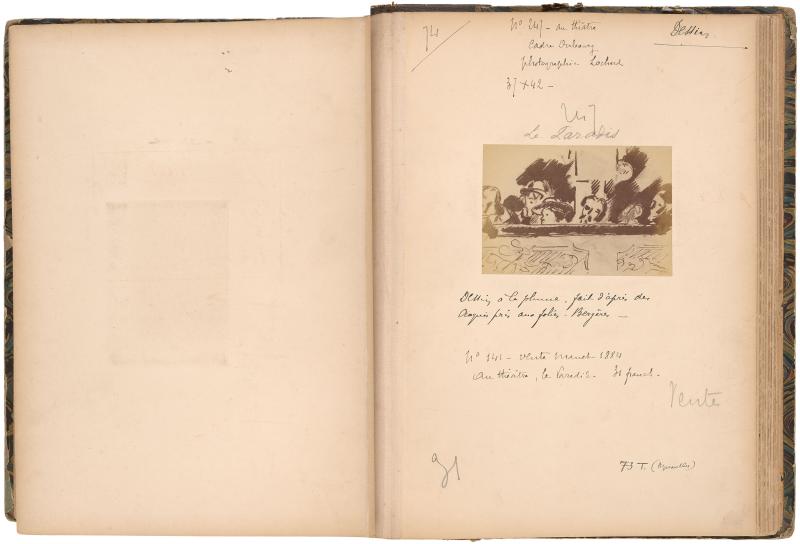 74
No 247 - au théâtre
Cadre
photographie Lochard
37 x 42 -
Dessins
247
Le Paradis
Dessin à la plume. fait d'après des
croquis pris aux folies-Bergères -
No 141 - vente Manet 1884
au théâtre, le Paradis. 31 francs.
Vente
91
73 T.